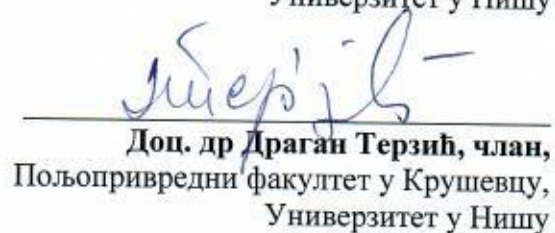 Универзитет у Нишу
Доц. др Драган Терзић, члан,
Пољопривредни факултет у Крушевцу,
Универзитет у Нишу